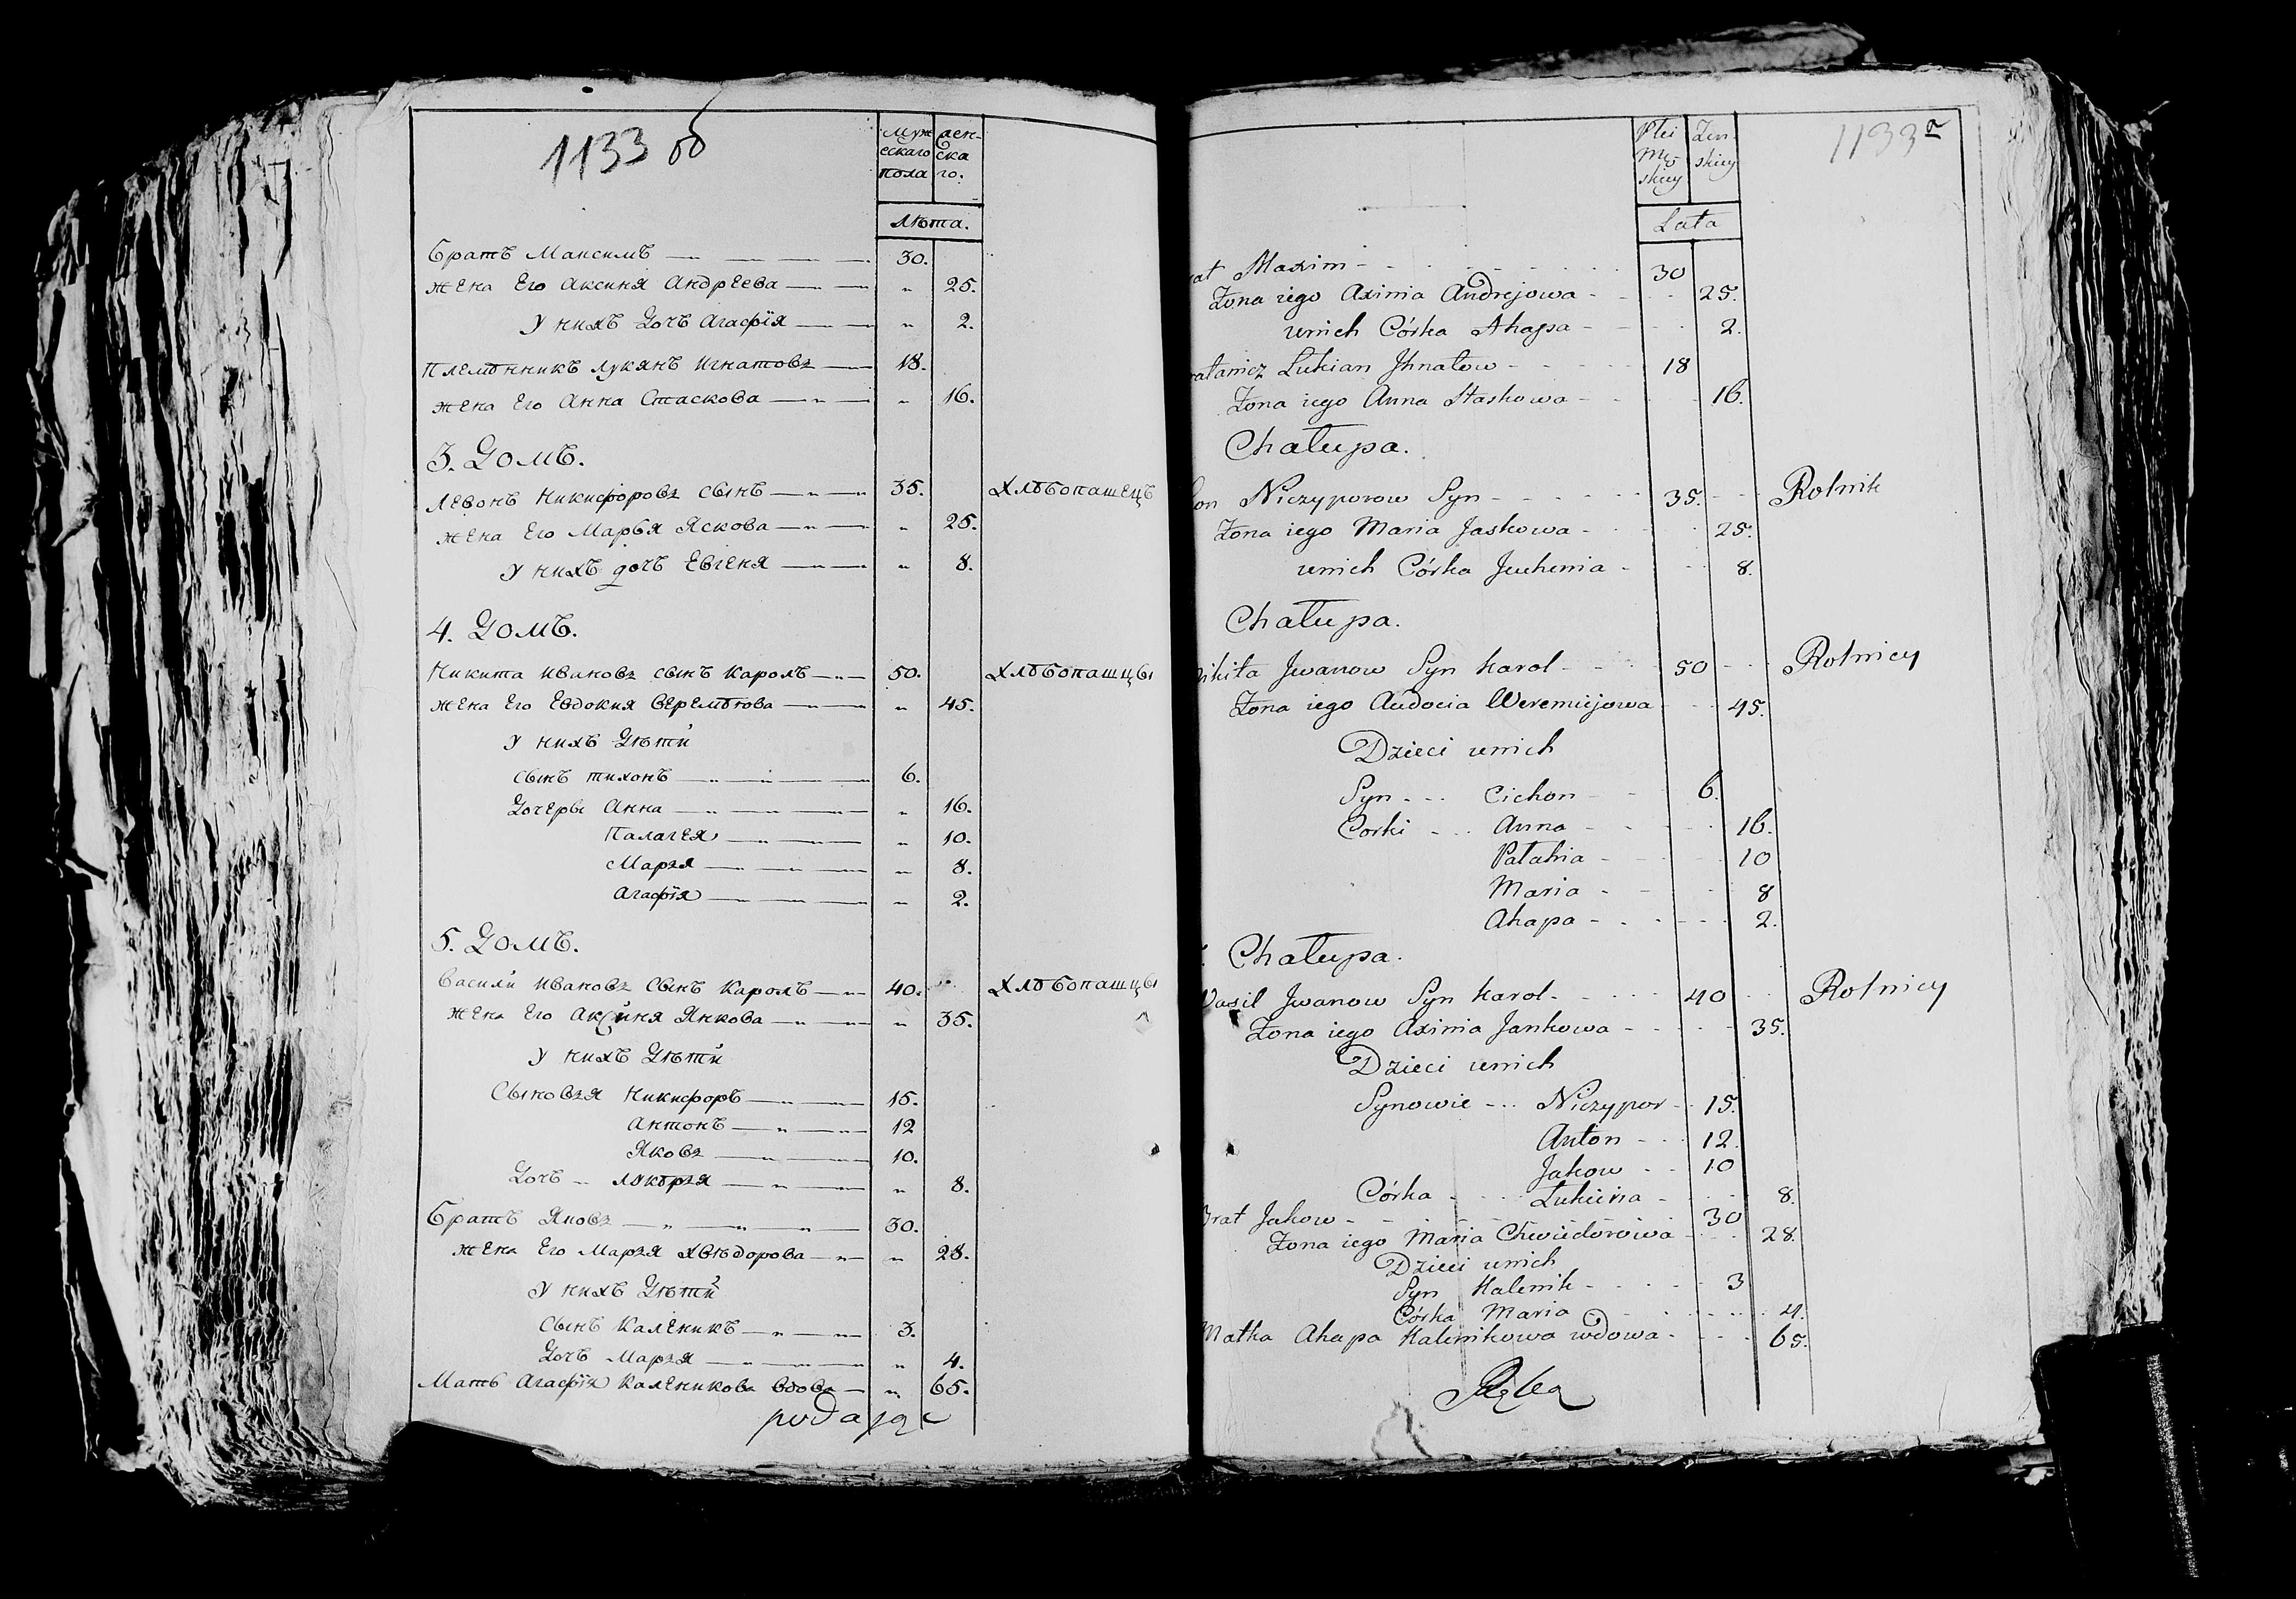 1133 об
муж ескаго пола
жен ска го.
лѣта.
Братъ Максимъ 30.
жена Его Аксиня Андреева " 25.
У нихъ Дочъ Агафія " 2.
Племѣнникъ Лукянъ Игнатовъ 18.
жена Его Анна Стаскова " 16.
3. Домъ.
Левонъ Никифоровъ сынъ 35. Хлѣбопашецъ
жена Его Марья Яскова " 25.
У нихъ дочъ Евгеня " 8.
4. Домъ.
Никита Ивановъ сынъ Кароль 50. Хлѣбопашцы
жена Его Евдокия Веремѣюва " 45.
У нихъ Дѣти
сынъ тихонъ 6.
Дочеры Анна " 16.
Палагея " 10.
Маръя " 8.
Агафія " 2.
5. Домъ.
Васили Ивановъ Сынъ Кароль 40. Хлѣбопашцы
жена Его Аксиня Янкова " 35.
У нихъ Дѣти
Сыновъя Никифоръ 15.
Антонъ 12
Яковъ 10.
Дочъ Лукѣръя " 8.
Братъ Яковъ 30.
жена Его Маръя Хвѣдорова " 28.
У нихъ Дѣти
Сынъ Каленикъ 3.
Дочъ Маръя " 4.
Мать Агафія Каленикова вдова " 65.
podając
1133 а
Płci Mę skiey
Żen skiey
Lata
at Maxim 30
Żona iego Axinia Andrejowa 25.
unich Córka Ahapa 2.
ratanicz Lukian Jhnatow 18
Żona iego Anna Staskowa 16.
Chałupa.
on Niczyporow Syn 35. Rolnik
Żona iego Maria Jaskowa 25.
unich Córka Jeuhenia 8.
Chałupa.
ikita Jwanow Syn Karol 50 Rolnicy
Żona iego Audocia Weremiejowa 45.
Dzieci unich
Syn Cichon 6.
Corki Anna 16.
Pałahia 10
Maria 8
Ahapa 2.
Chałupa.
Wasil Jwanow Syn Karol 40 Rolnicy
Żona iego Axinia Jankowa 35.
Dzieci unich
Synowie Niczypor 15.
Anton 12.
Jakow 10
Córka Łukiera 8.
Brat Jakow 30
Żona iego Maria Chwiedorowa 28.
Dzieci unich
Syn Kalenik 3
Córka Maria 4.
Matka Ahapa Kalenikowa wdowa 65.
Ręką